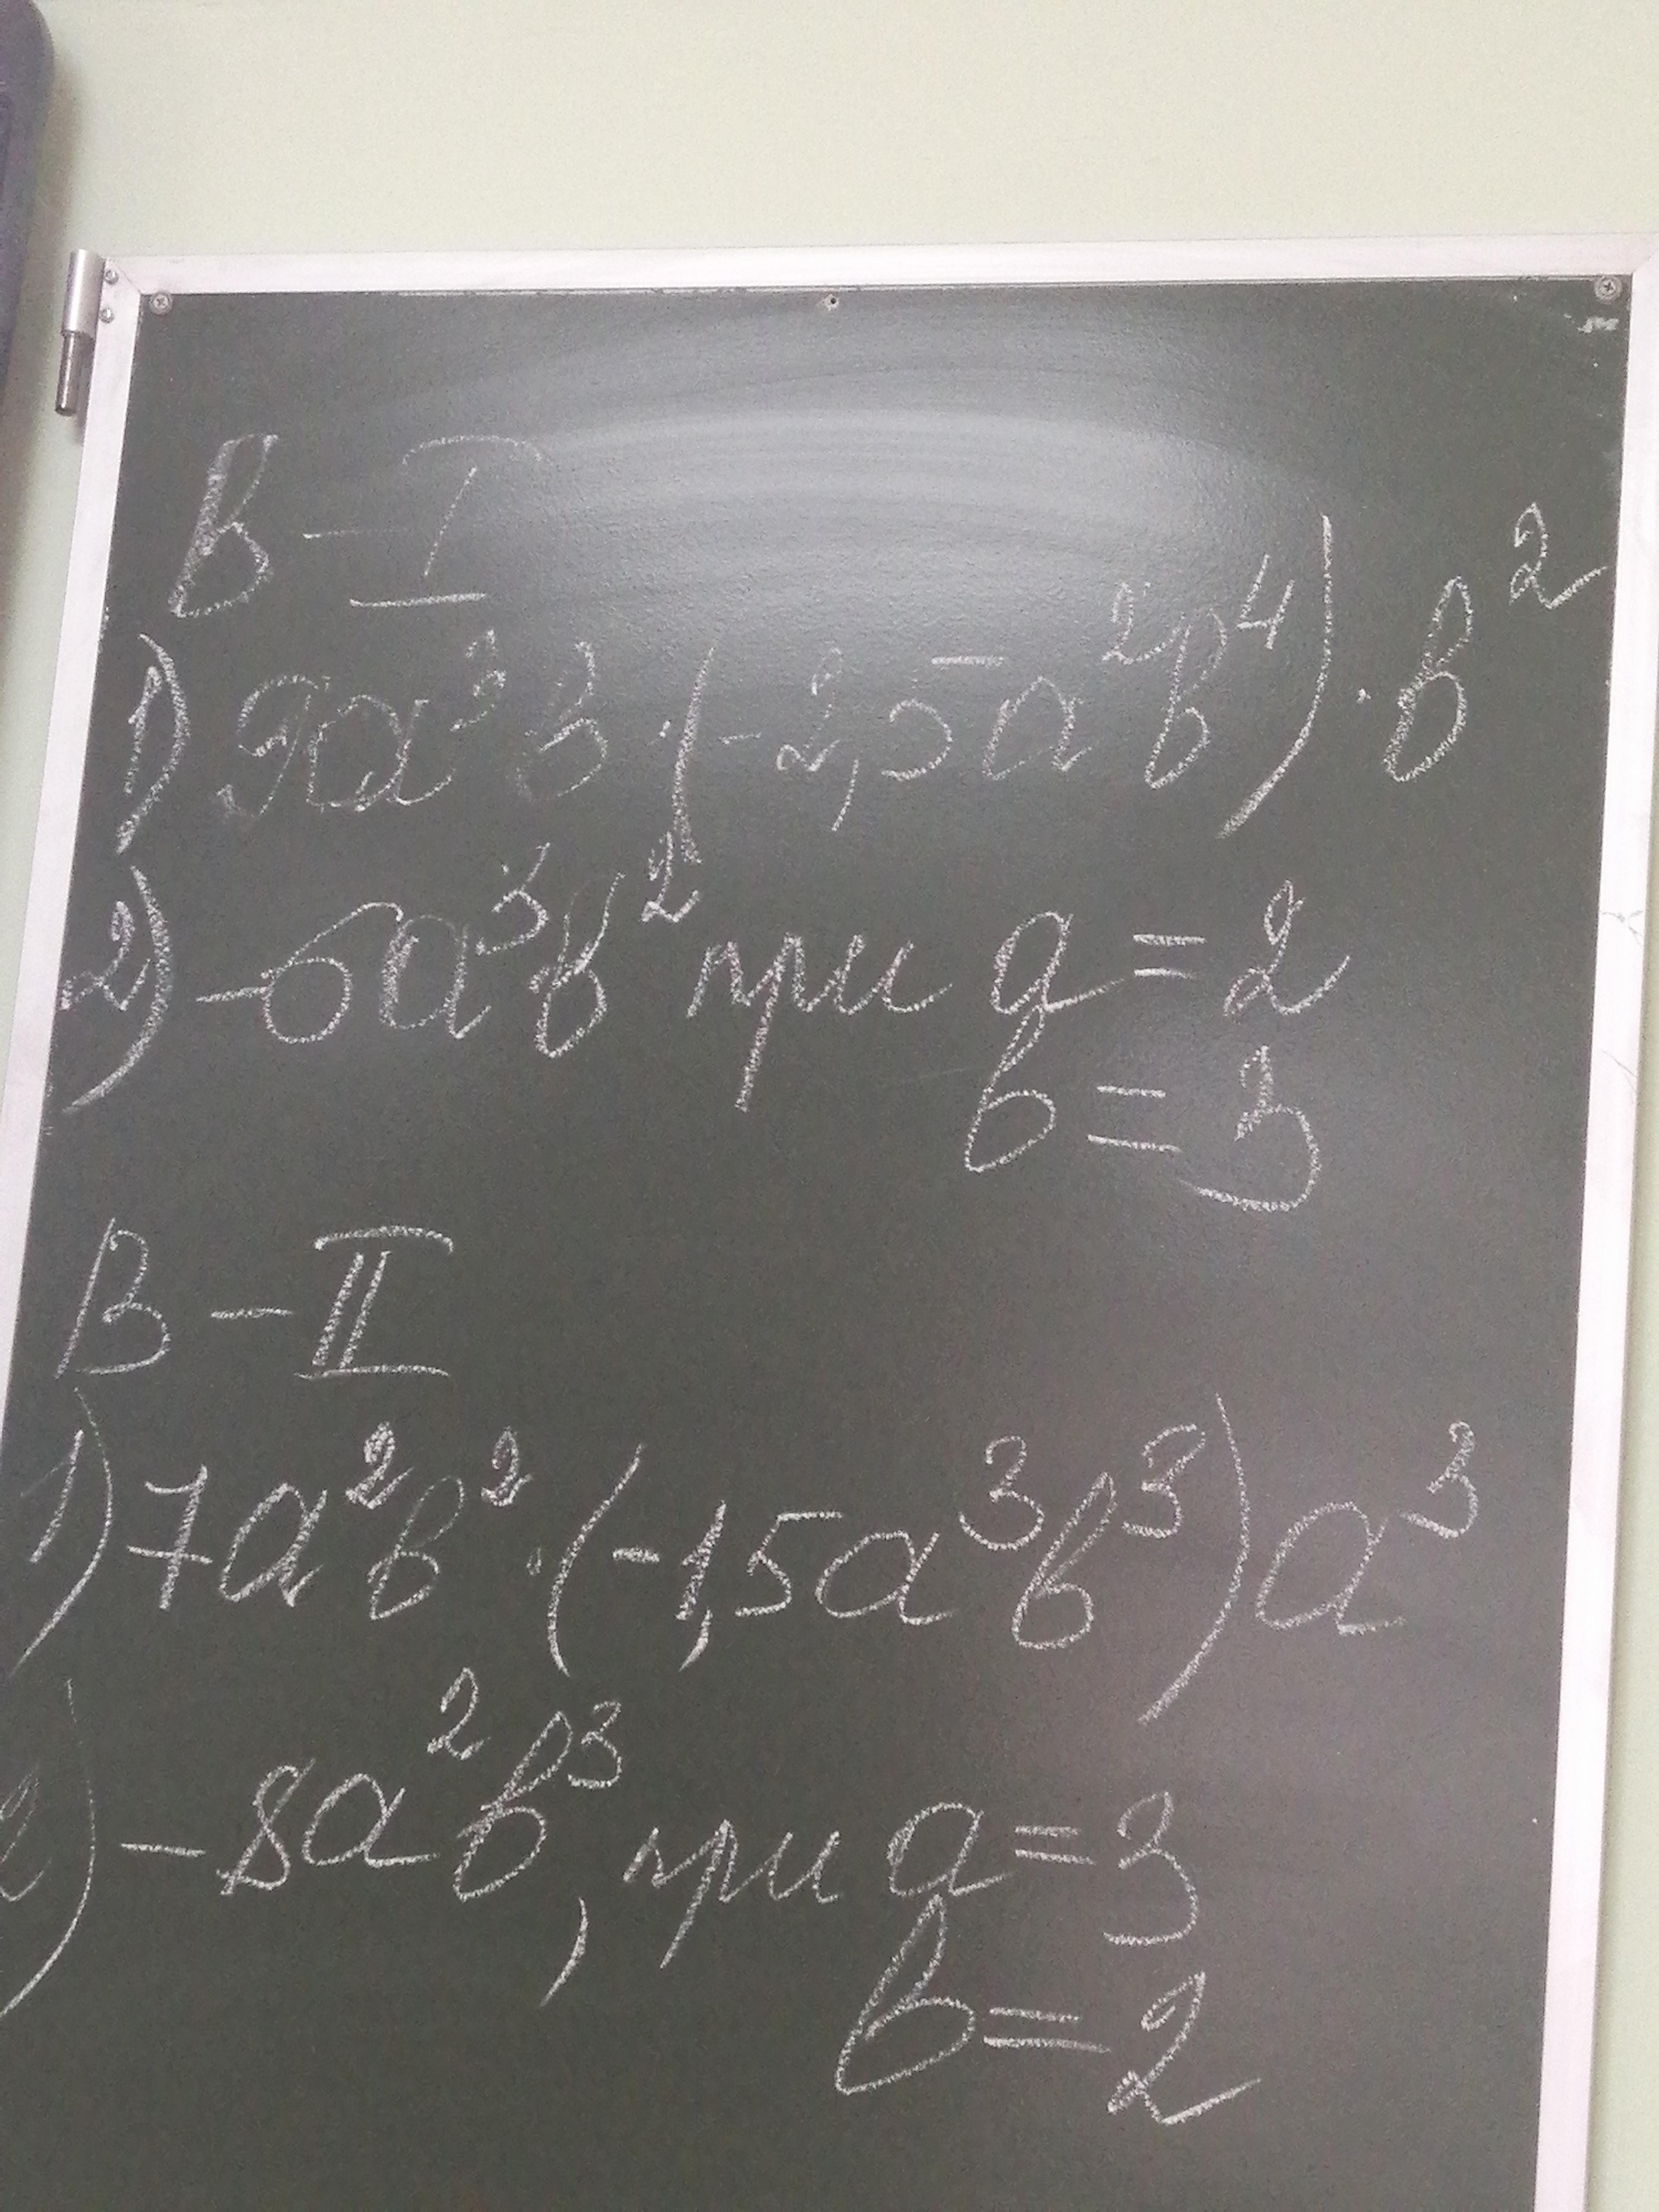 В - I
1) 9a³b · (-2,5a²b⁴) · b²
2) -6a³b² при a = 2
b = 3
В - II
1) 7a²b² · (-1,5a³b³) a³
2) -8a²b³, при a = 3
b = 2